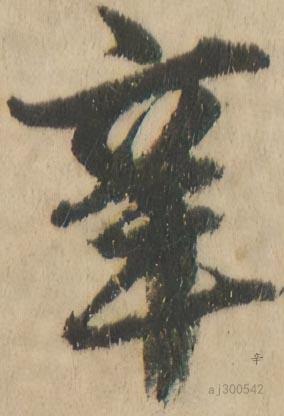 辛
辛
aj300542